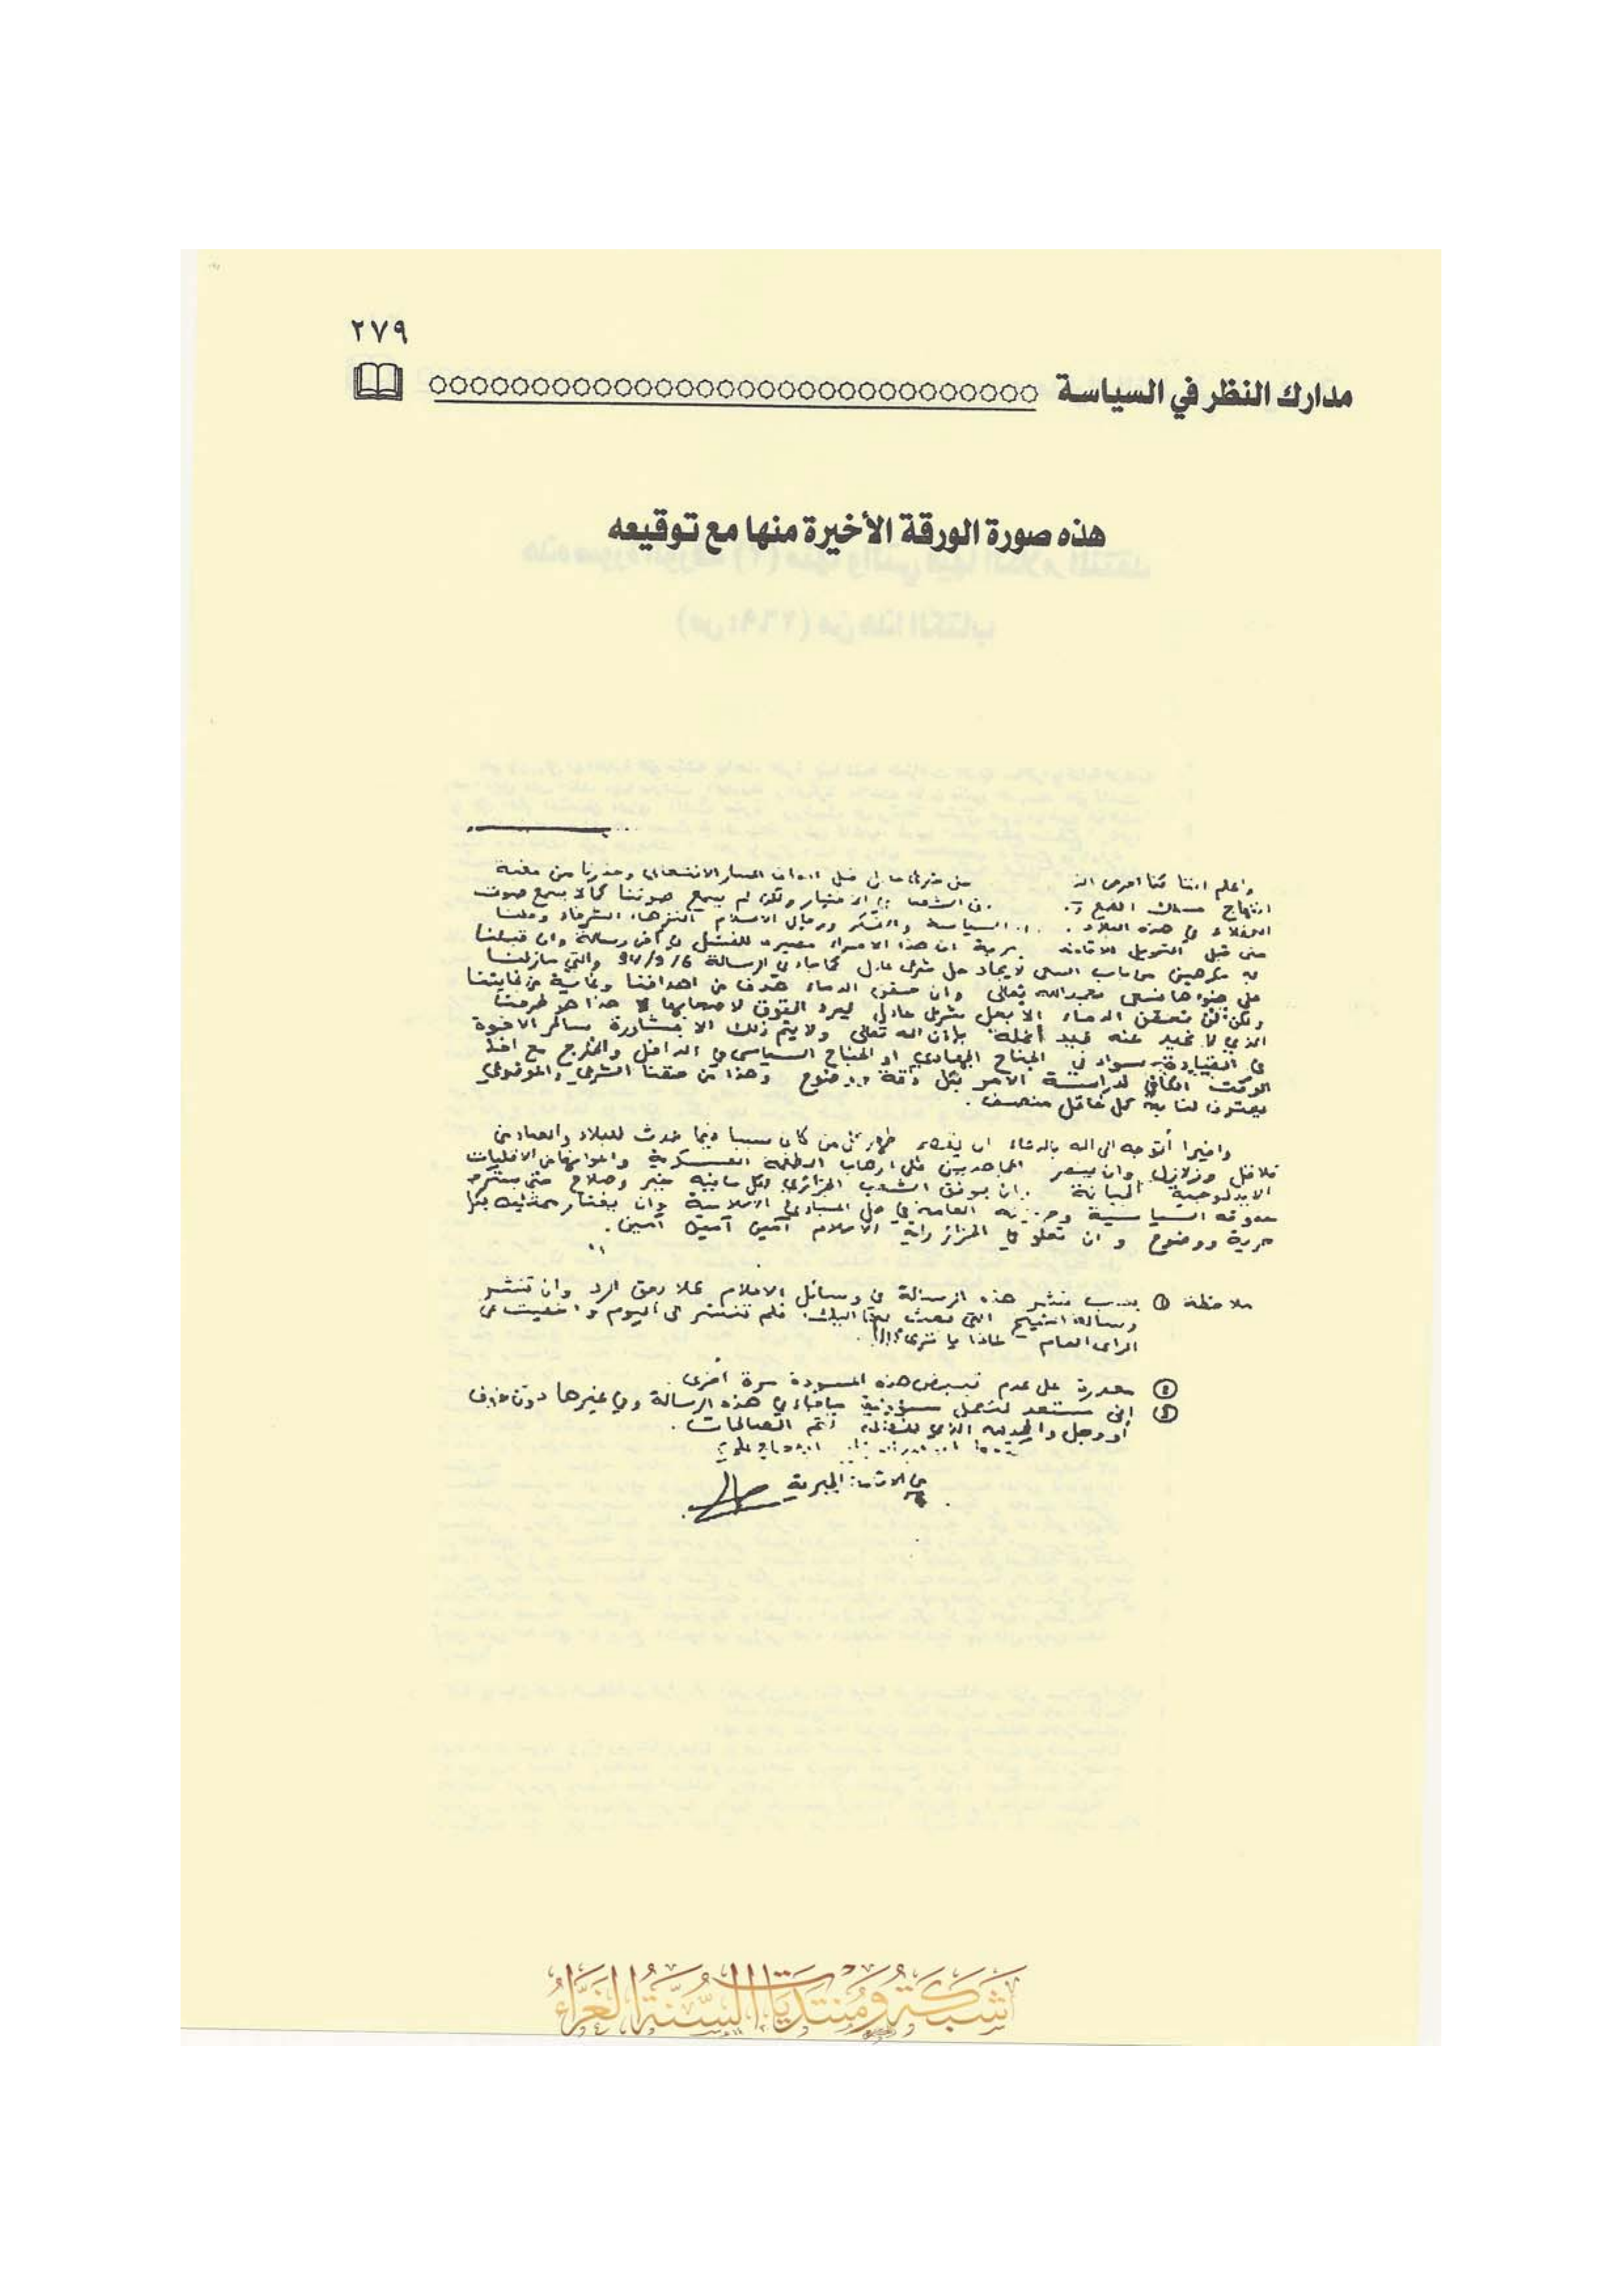 ٢٧٩
مدارك النظر في السياسة
هذه صورة الورقة الأخيرة منها مع توقيعه
واعلم اننا كنا احرص الن من غيركم على قبل المسار الانتخابي وحذرنا من مغبة
انتهاج مسلك القمع الشعب في الاختيار ولكن لم يسمع صوتنا كما لا يسمع صوت
العقلاء في هذه البلاد السياسة والفكر ورجال الاسلام النزهاء الشرفاء وقلنا
من قبل التحويل الاقامة ان هذا الامر مصيره للفشل في آخر رسالة وان قبلنا
به مكرهين من باب السعي لايجاد حل شرعي عادل كما جاء في الرسالة والتي مازلنا
على ضوءها نسعى بحمد الله تعالى وان حقن الدماء هدف من اهدافنا وغاية من غايتنا
ولكن لن تحقن الدماء الا بحل شرعي عادل ليرد الحقوق لاصحابها هذا هو طرحنا
الذي لا نحيد عنه قيد أنملة بإذن الله تعالى ولا يتم ذلك الا بمشاورة سائر الاخوة
في القيادة سواء في الجناح الجهادي او الجناح السياسي في الداخل والخارج مع اخذ
الوقت الكافي لدراسة الامر بكل دقة ووضوح وهذا من حقنا الشرعي والموضوعي
يعترف لنا به كل عاقل منصف.
واخيرا أتوجه الى الله بالدعاء ان يقصم ظهر كل من كان سببا فيما حدث للبلاد والعباد من
قلاقل وزلازل وان ينصر المجاهدين على ارهاب الطغمة العسكرية واعوانها من الاقليات
الايديولوجية الجبانة وان يوفق الشعب الجزائري لكل ما فيه خير وصلاح حتى يسترد
حقوقه السياسية وحرياته العامة في ظل المبادئ الاسلامية وان يختار ممثليه بكل
حرية ووضوح و ان تعلو في الجزائر راية الاسلام آمين آمين آمين.
ملاحظة ① يجب نشر هذه الرسالة في وسائل الاعلام عملا بحق الرد وان تنشر
رسالة الشيخ التي بعث بها اليك، فلم تنشر الى اليوم واخفيت عن
الرأي العام لماذا يا ترى؟!!.
② معذرة على عدم تبييض هذه المسودة مرة أخرى.
③ إني مستعد لتحمل مسؤولية ما جاء في هذه الرسالة وفي غيرها دون خوف
أو وجل والحمد لله الذي بنعمته تتم الصالحات.
من الاقامة الجبرية
شبكة ومنتديات السنة الغراء